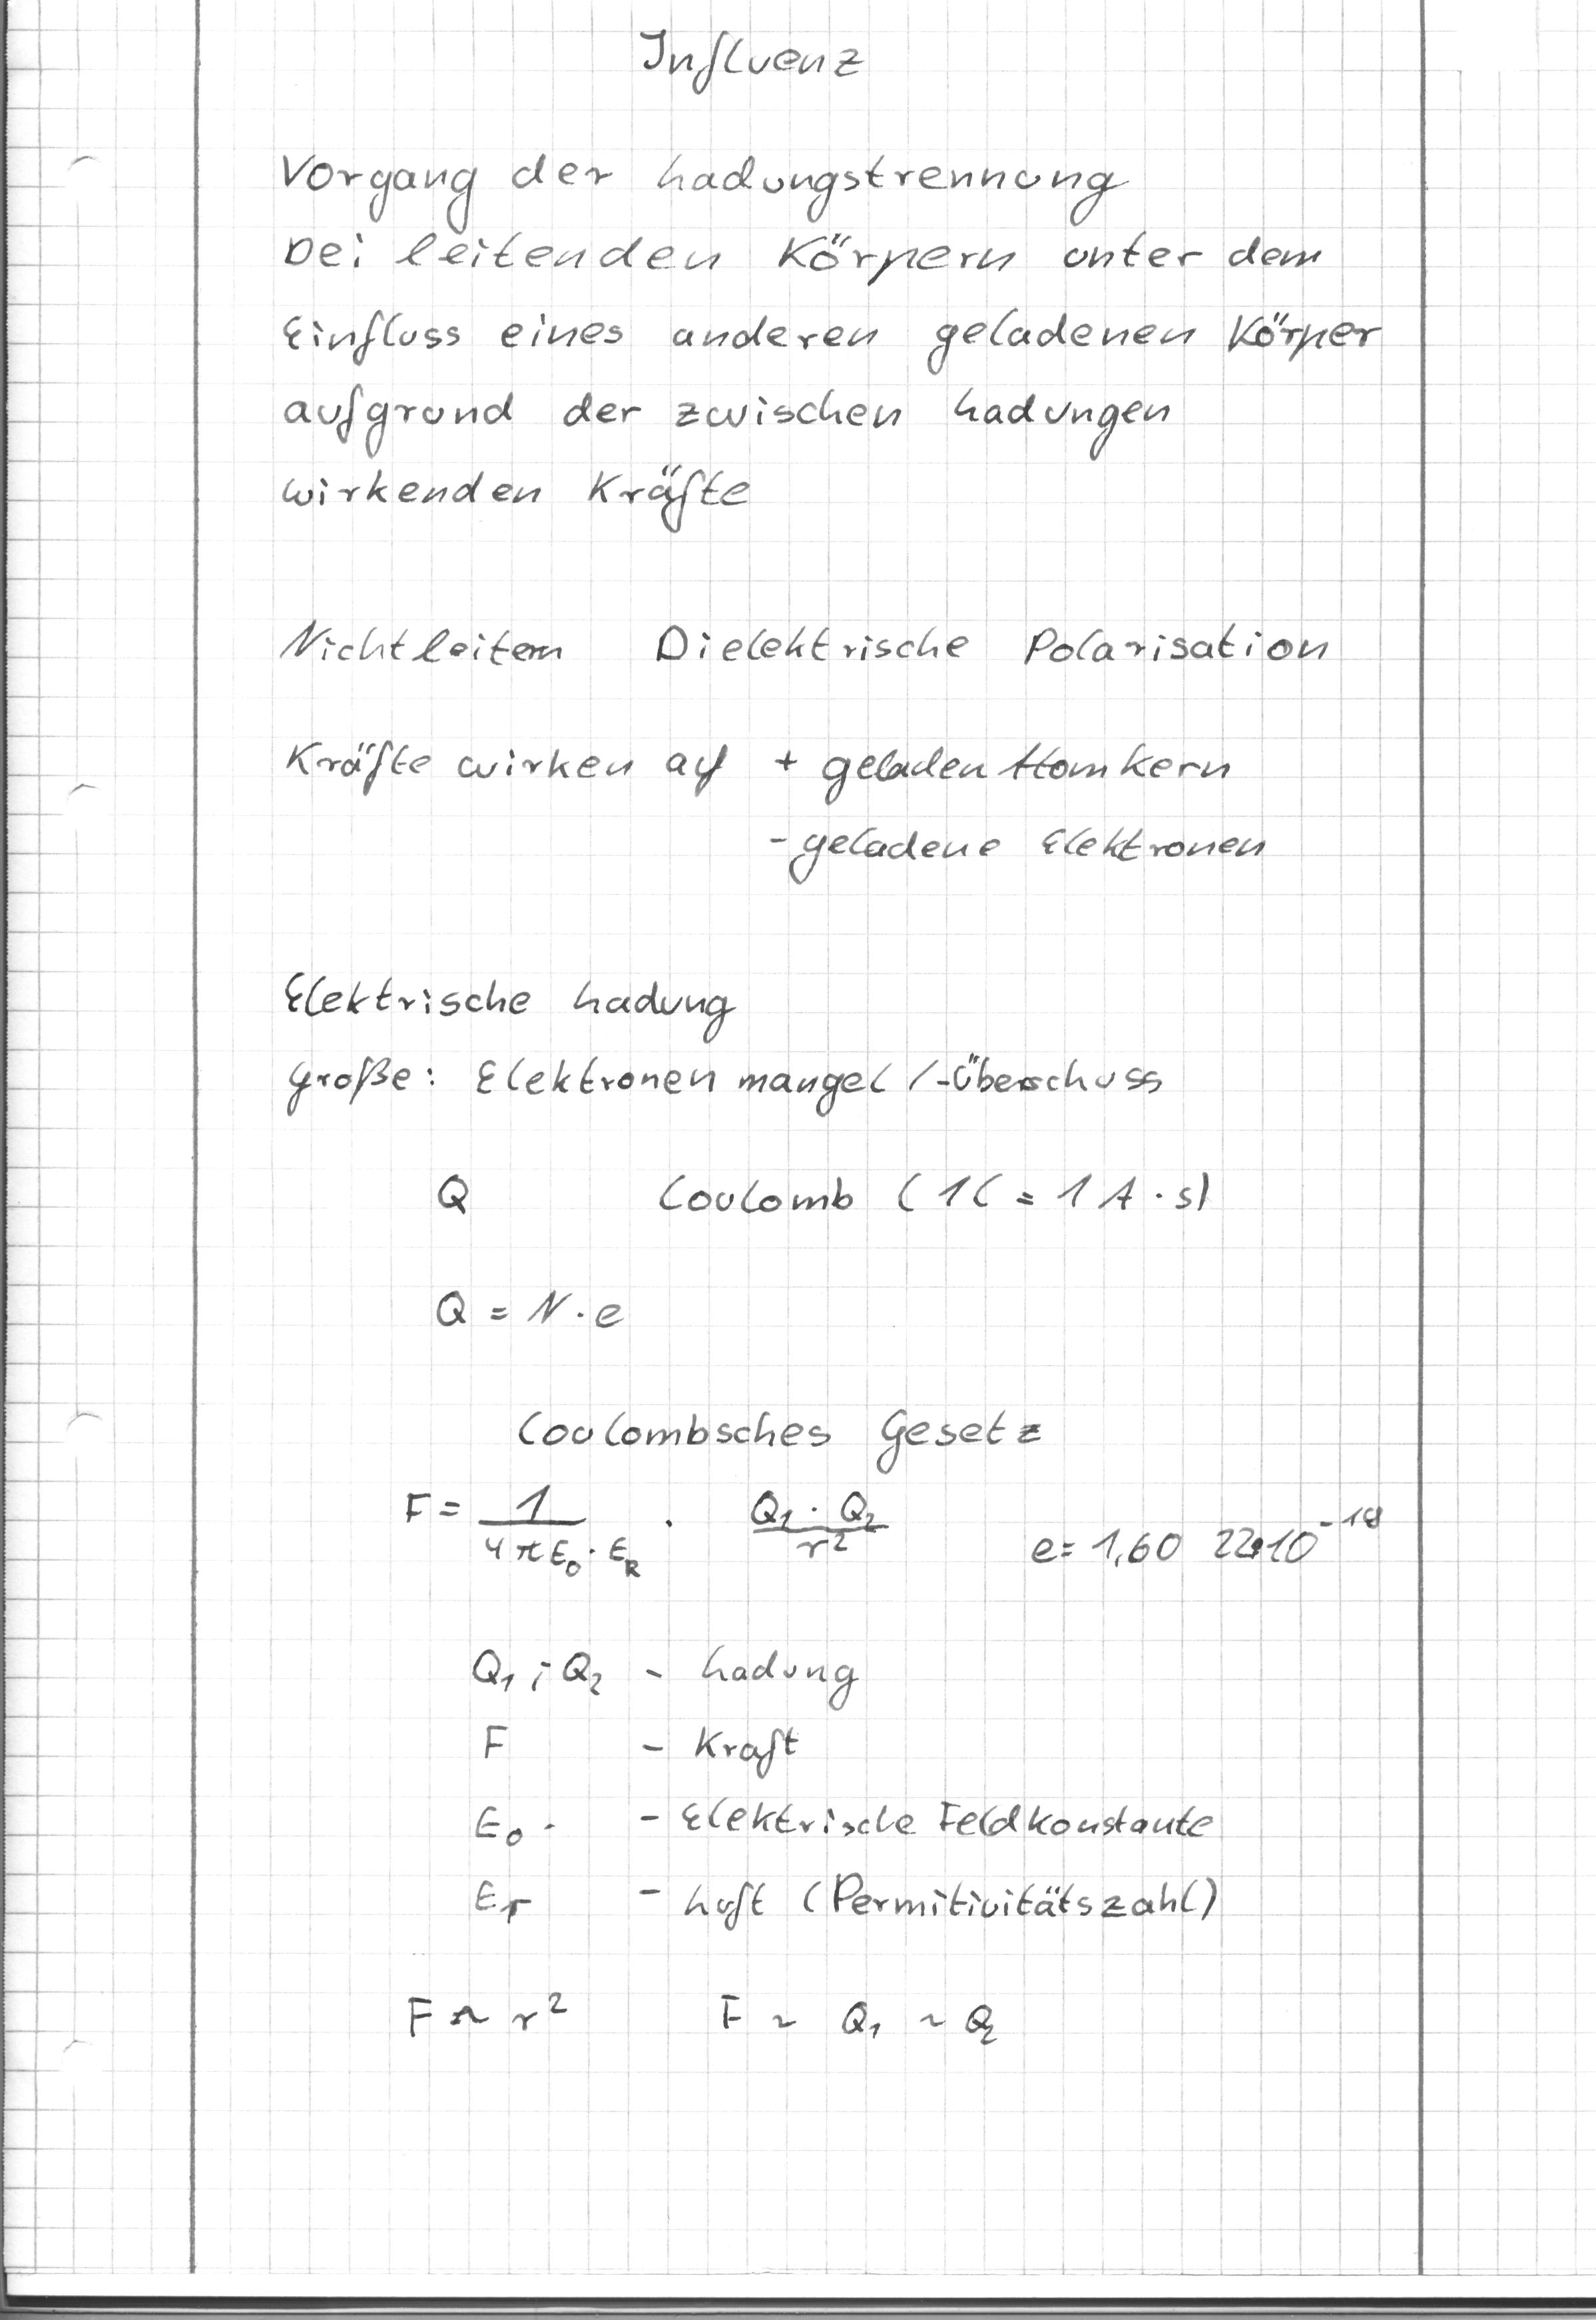 Influenz
Vorgang der Ladungstrennung
bei leitenden Körpern unter dem
Einfluss eines anderen geladenen Körper
aufgrund der zwischen Ladungen
wirkenden Kräfte
Nichtleitern Dielektrische Polarisation
Kräfte wirken auf + geladen Atomkern
- geladene Elektronen
Elektrische Ladung
Größe: Elektronenmangel /-Überschuss
Q Coulomb (1C = 1A · s)
Q = N · e
Coulombsches Gesetz
F = 1 / (4πE₀ · E_R) · (Q₁ · Q₂) / r² e = 1,60 22·10⁻¹⁹
Q₁ ; Q₂ - Ladung
F - Kraft
E₀ - Elektrische Feldkonstante
Eᵣ - Luft (Permitivitätszahl)
F ~ r² F ~ Q₁ ~ Q₂